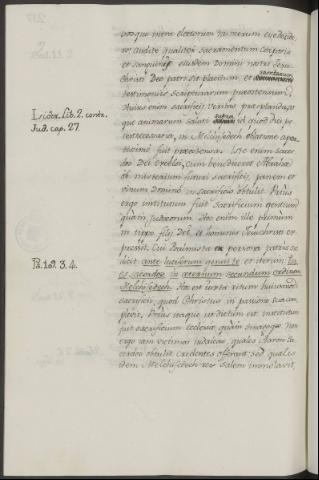 vosque inter electorum numerum eyedede-
ro, audite qualiter sacramentum corporis
et sanguinis eiusdem Domini nostri Jesu-
christi Deo patri sit placitum, et sanctarum
testimoniis scripturarum præostensum.
divino enim sacrificii veritas præ
que animarum salus supra id quod dici po-
test necessaria, in Melchisedech oblatione aper-
tissimè fuit præostensa. Iste enim sacer-
dos Dei excelsi, cum benediceret Abrahæ
ob mysterium futuri sacrificii, panem et
vinum Domino in sacrificio obtulit. Prius
ergo institutum fuit sacrificium gentium
quàm Judæorum. Ita enim ille primum
in typo filii Dei et hominis Jesuchristi ex-
pressit. Cui Psalmista ex persona patris di-
icit ante luciferum genui te et iterum: Tu
es sacerdos in æternum secundum ordinem
Melchisedech. Hoc est iuxta ritum huiusmodi
sacrificii, quod Christus in passione sua com-
plevit. Prius itaque ut dictum est institutum
fuit sacrificium ecclesiæ, quàm sinagogæ. Non
ergo iam victimas iudaicas, quales Aaron sa-
cerdos obtulit credentes offerant: sed quales
idem Melchisedech rex Salem immolavit,
Isidor. Lib. 2. contr.
Jud. cap. 27.
Ps. 109. 3. 4.